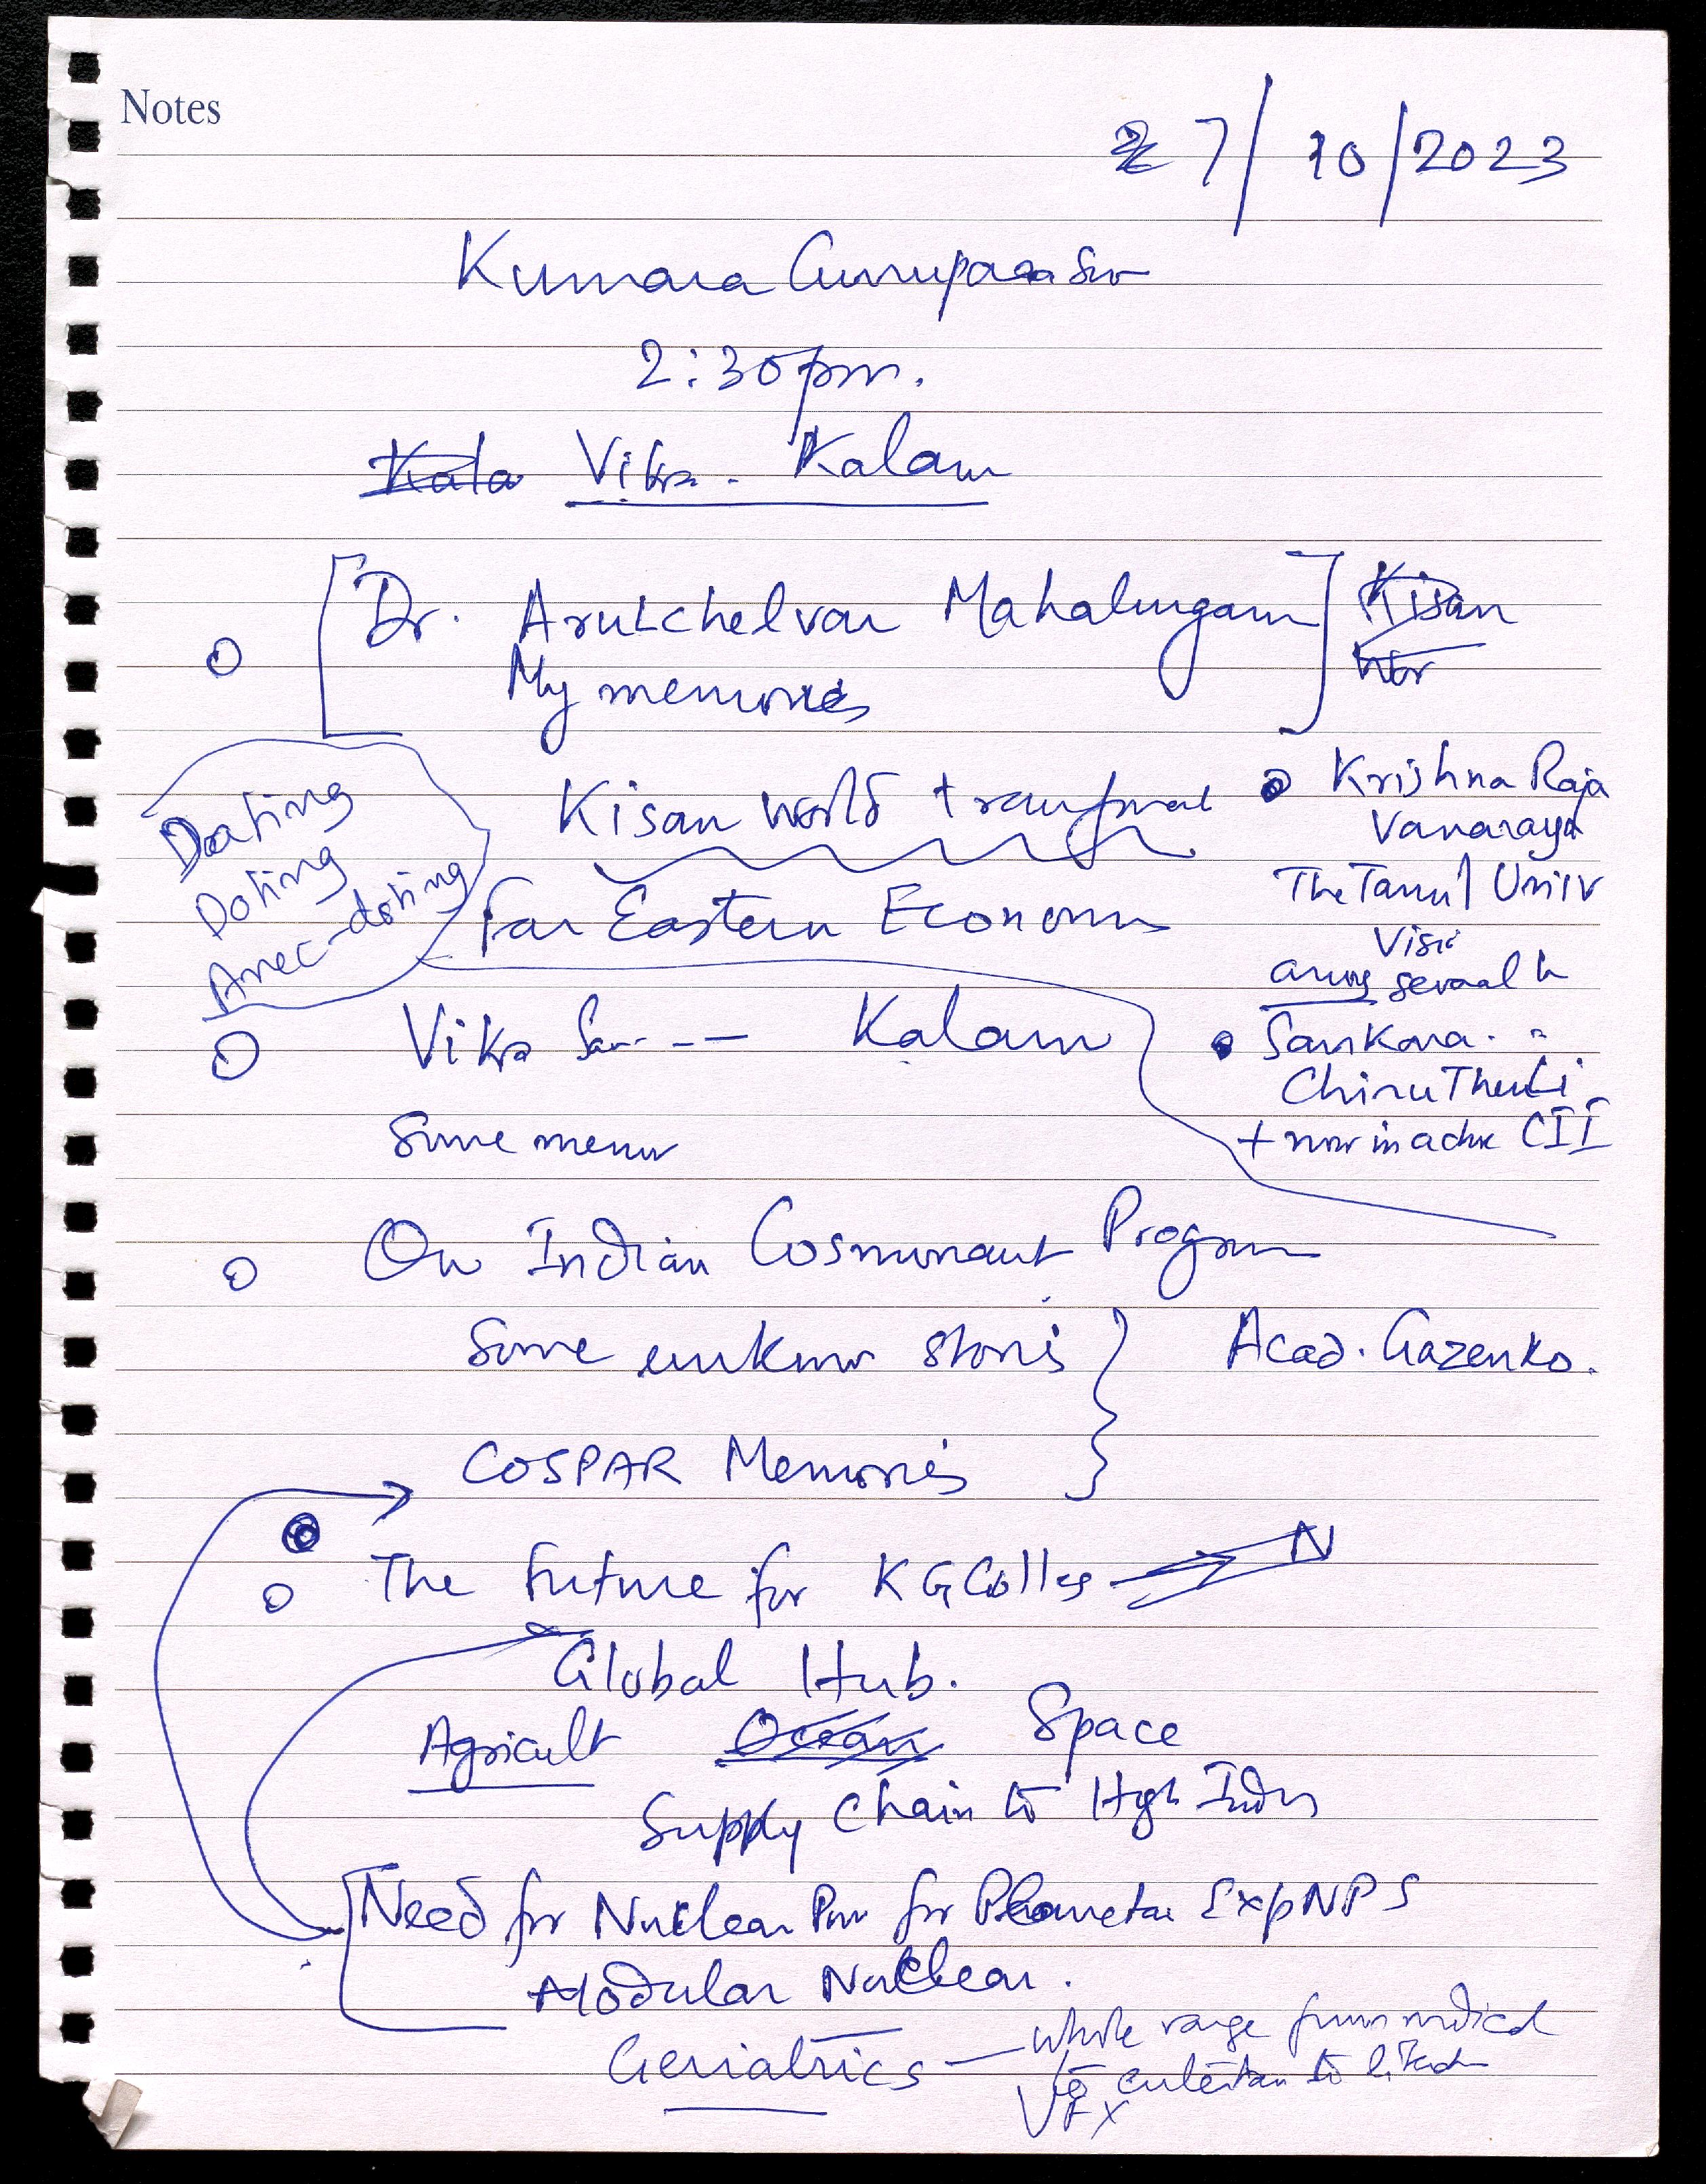 Notes
27/10/2023
Kumara Gurupara
2:30pm.
Kala Vikra. Kalam
[Dr. Arutchelvar Mahalingam]
My memories
Kisan
Kisan World
Dating
Doting
Anec-doting
Far Eastern Econom
Krishna Raj
Vanaraya
The Tamil Univ
Visi
Vikra Sar--- Kalam
Some mem
Sankara. "
+ now in CII
On Indian Cosmonaut Program
Some unknow stories } Acad. Gazenko.
COSPAR Memories
The Future for KG Colleg → N
Global Hub.
Agricult Ocean Space
Supply Chain to High Indus
[Need for Nuclear Pow for Planetar Exp NPS
Modular Nuclear.
Geriatrics — whole range from medical
to to
VFX